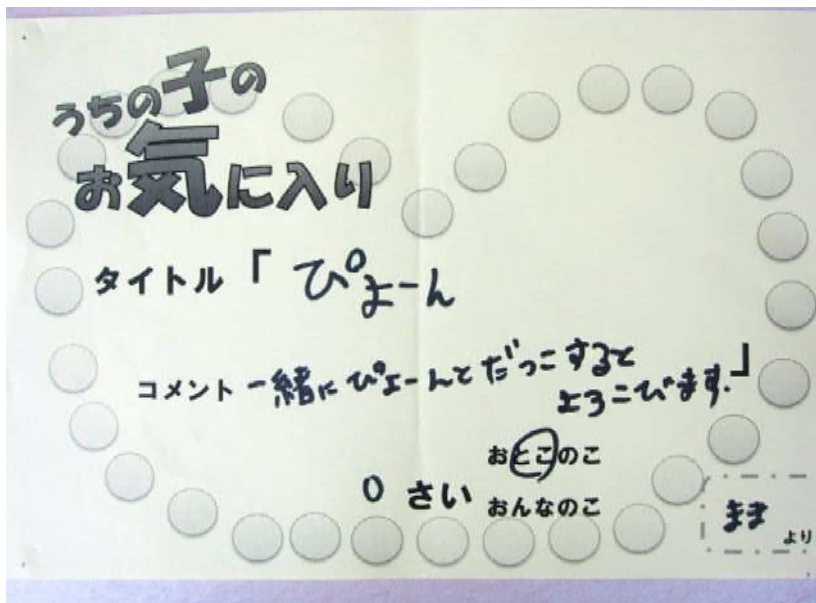 うちの子の
お気に入り
タイトル「 ぴょーん
コメント 一緒にぴょーんとだっこすると
よろこびます.」
おとこのこ
0 さい
おんなのこ
まま
より